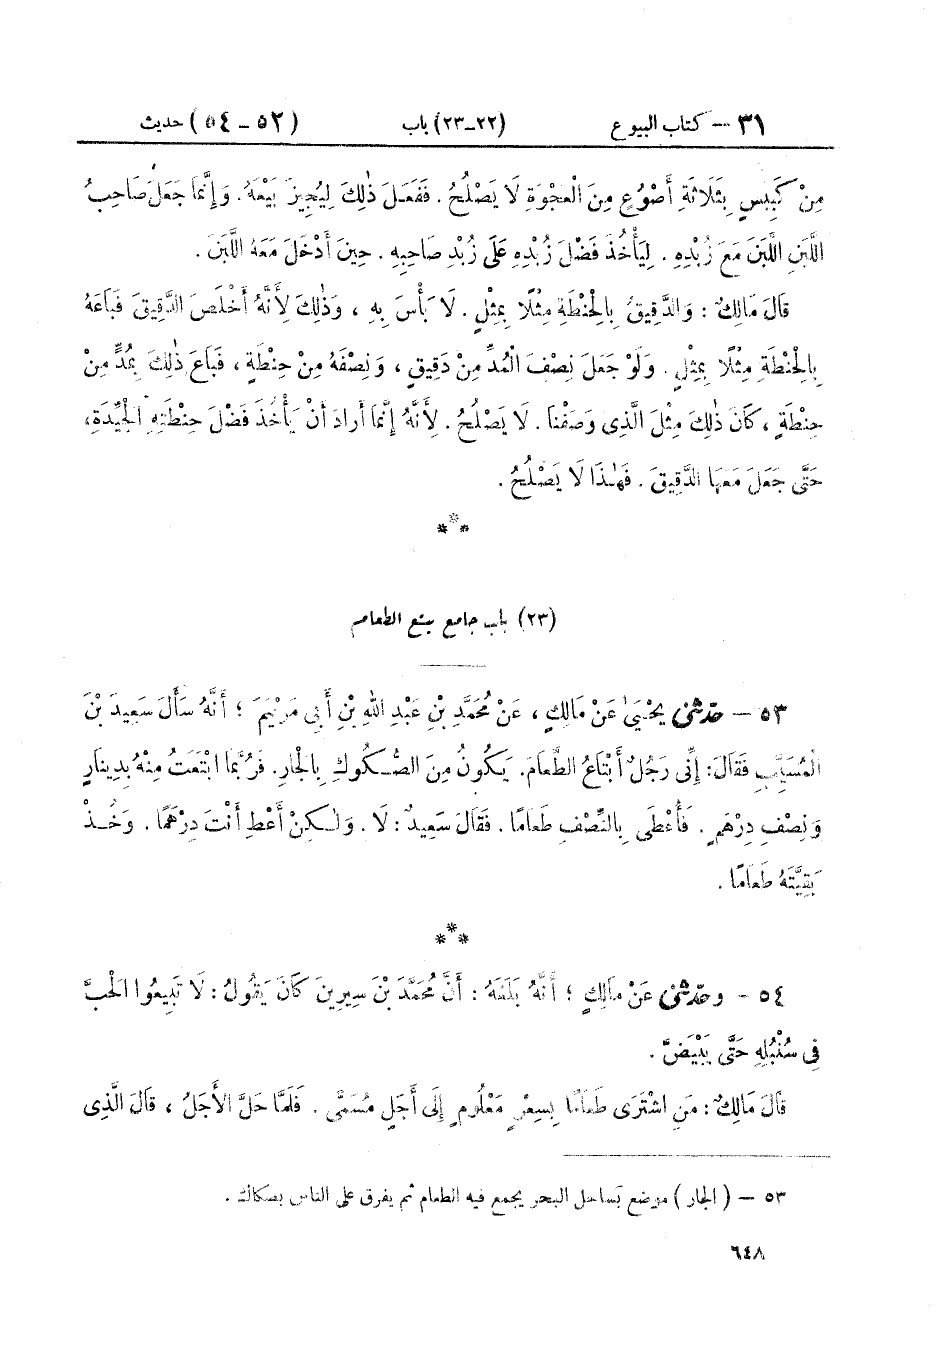 ٣١ – كتاب البيوع (٢٢-٢٣) باب (٥٢-٥٤) حديث
مِنْ كَبِيسٍ بِثَلَاثَةِ أَصْوُعٍ مِنَ الْعَجْوَةِ لَا يَصْلُحُ . فَفَعَلَ ذٰلِكَ لِيُجِيزَ بَيْعَهُ . وَإِنَّمَا جَعَلَ صَاحِبُ
اللَّبَنِ اللَّبَنَ مَعَ زُبْدِهِ . لِيَأْخُذَ فَضْلَ زُبْدِهِ عَلَى زُبْدِ صَاحِبِهِ . حِينَ أَدْخَلَ مَعَهُ اللَّبَنَ .
قَالَ مَالِكٌ : وَالدَّقِيقُ بِالْحِنْطَةِ مِثْلًا بِمِثْلٍ . لَا بَأْسَ بِهِ ، وَذٰلِكَ لِأَنَّهُ أَخْلَصَ الدَّقِيقَ فَبَاعَهُ
بِالْحِنْطَةِ مِثْلًا بِمِثْلٍ . وَلَوْ جَعَلَ نِصْفَ الْمُدِّ مِنْ دَقِيقٍ ، وَنِصْفَهُ مِنْ حِنْطَةٍ ، فَبَاعَ ذٰلِكَ بِمُدٍّ مِنْ
حِنْطَةٍ ، كَانَ ذٰلِكَ مِثْلَ الَّذِى وَصَفْنَا . لَا يَصْلُحُ . لِأَنَّهُ إِنَّمَا أَرَادَ أَنْ يَأْخُذَ فَضْلَ حِنْطَتِهِ الْجَيِّدَةِ،
حَتَّى جَعَلَ مَعَهَا الدَّقِيقَ . فَهٰذَا لَا يَصْلُحُ .
***
(٢٣) باب جامع بيع الطعام
٥٣ – حدّثنى يَحْيَىٰ عَنْ مَالِكٍ ، عَنْ مُحَمَّدِ بْنِ عَبْدِ اللهِ بْنِ أَبِى مَرْيَمَ ؛ أَنَّهُ سَأَلَ سَعِيدَ بْنَ
الْمُسَيَّبِ فَقَالَ : إِنِّى رَجُلٌ أَبْتَاعُ الطَّعَامَ. يَكُونُ مِنَ الصُّكُوكِ بِالْجَارِ. فَرُبَّمَا ابْتَعْتُ مِنْهُ بِدِينَارٍ
وَنِصْفِ دِرْهَمٍ . فَأُعْطَى بِالنِّصْفِ طَعَامًا . فَقَالَ سَعِيدٌ : لَا . وَلٰكِنْ أَعْطِ أَنْتَ دِرْهَمًا . وَخُذْ
بَقِيَّتَهُ طَعَامًا .
***
٥٤ – وحدّثنى عَنْ مَالِكٍ ؛ أَنَّهُ بَلَغَهُ : أَنَّ مُحَمَّدَ بْنَ سِيرِينَ كَانَ يَقُولُ : لَا تَبِيعُوا الْحَبَّ
فِى سُنْبُلِهِ حَتَّى يَبْيَضَّ .
قَالَ مَالِكٌ : مَنِ اشْتَرَى طَعَامًا بِسِعْرٍ مَعْلُومٍ إِلَى أَجَلٍ مُسَمًّى . فَلَمَّا حَلَّ الْأَجَلُ ، قَالَ الَّذِى
٥٣ – ( الجار ) موضع بساحل البحر يجمع فيه الطعام ثم يفرق على الناس بصكاك .
٦٤٨